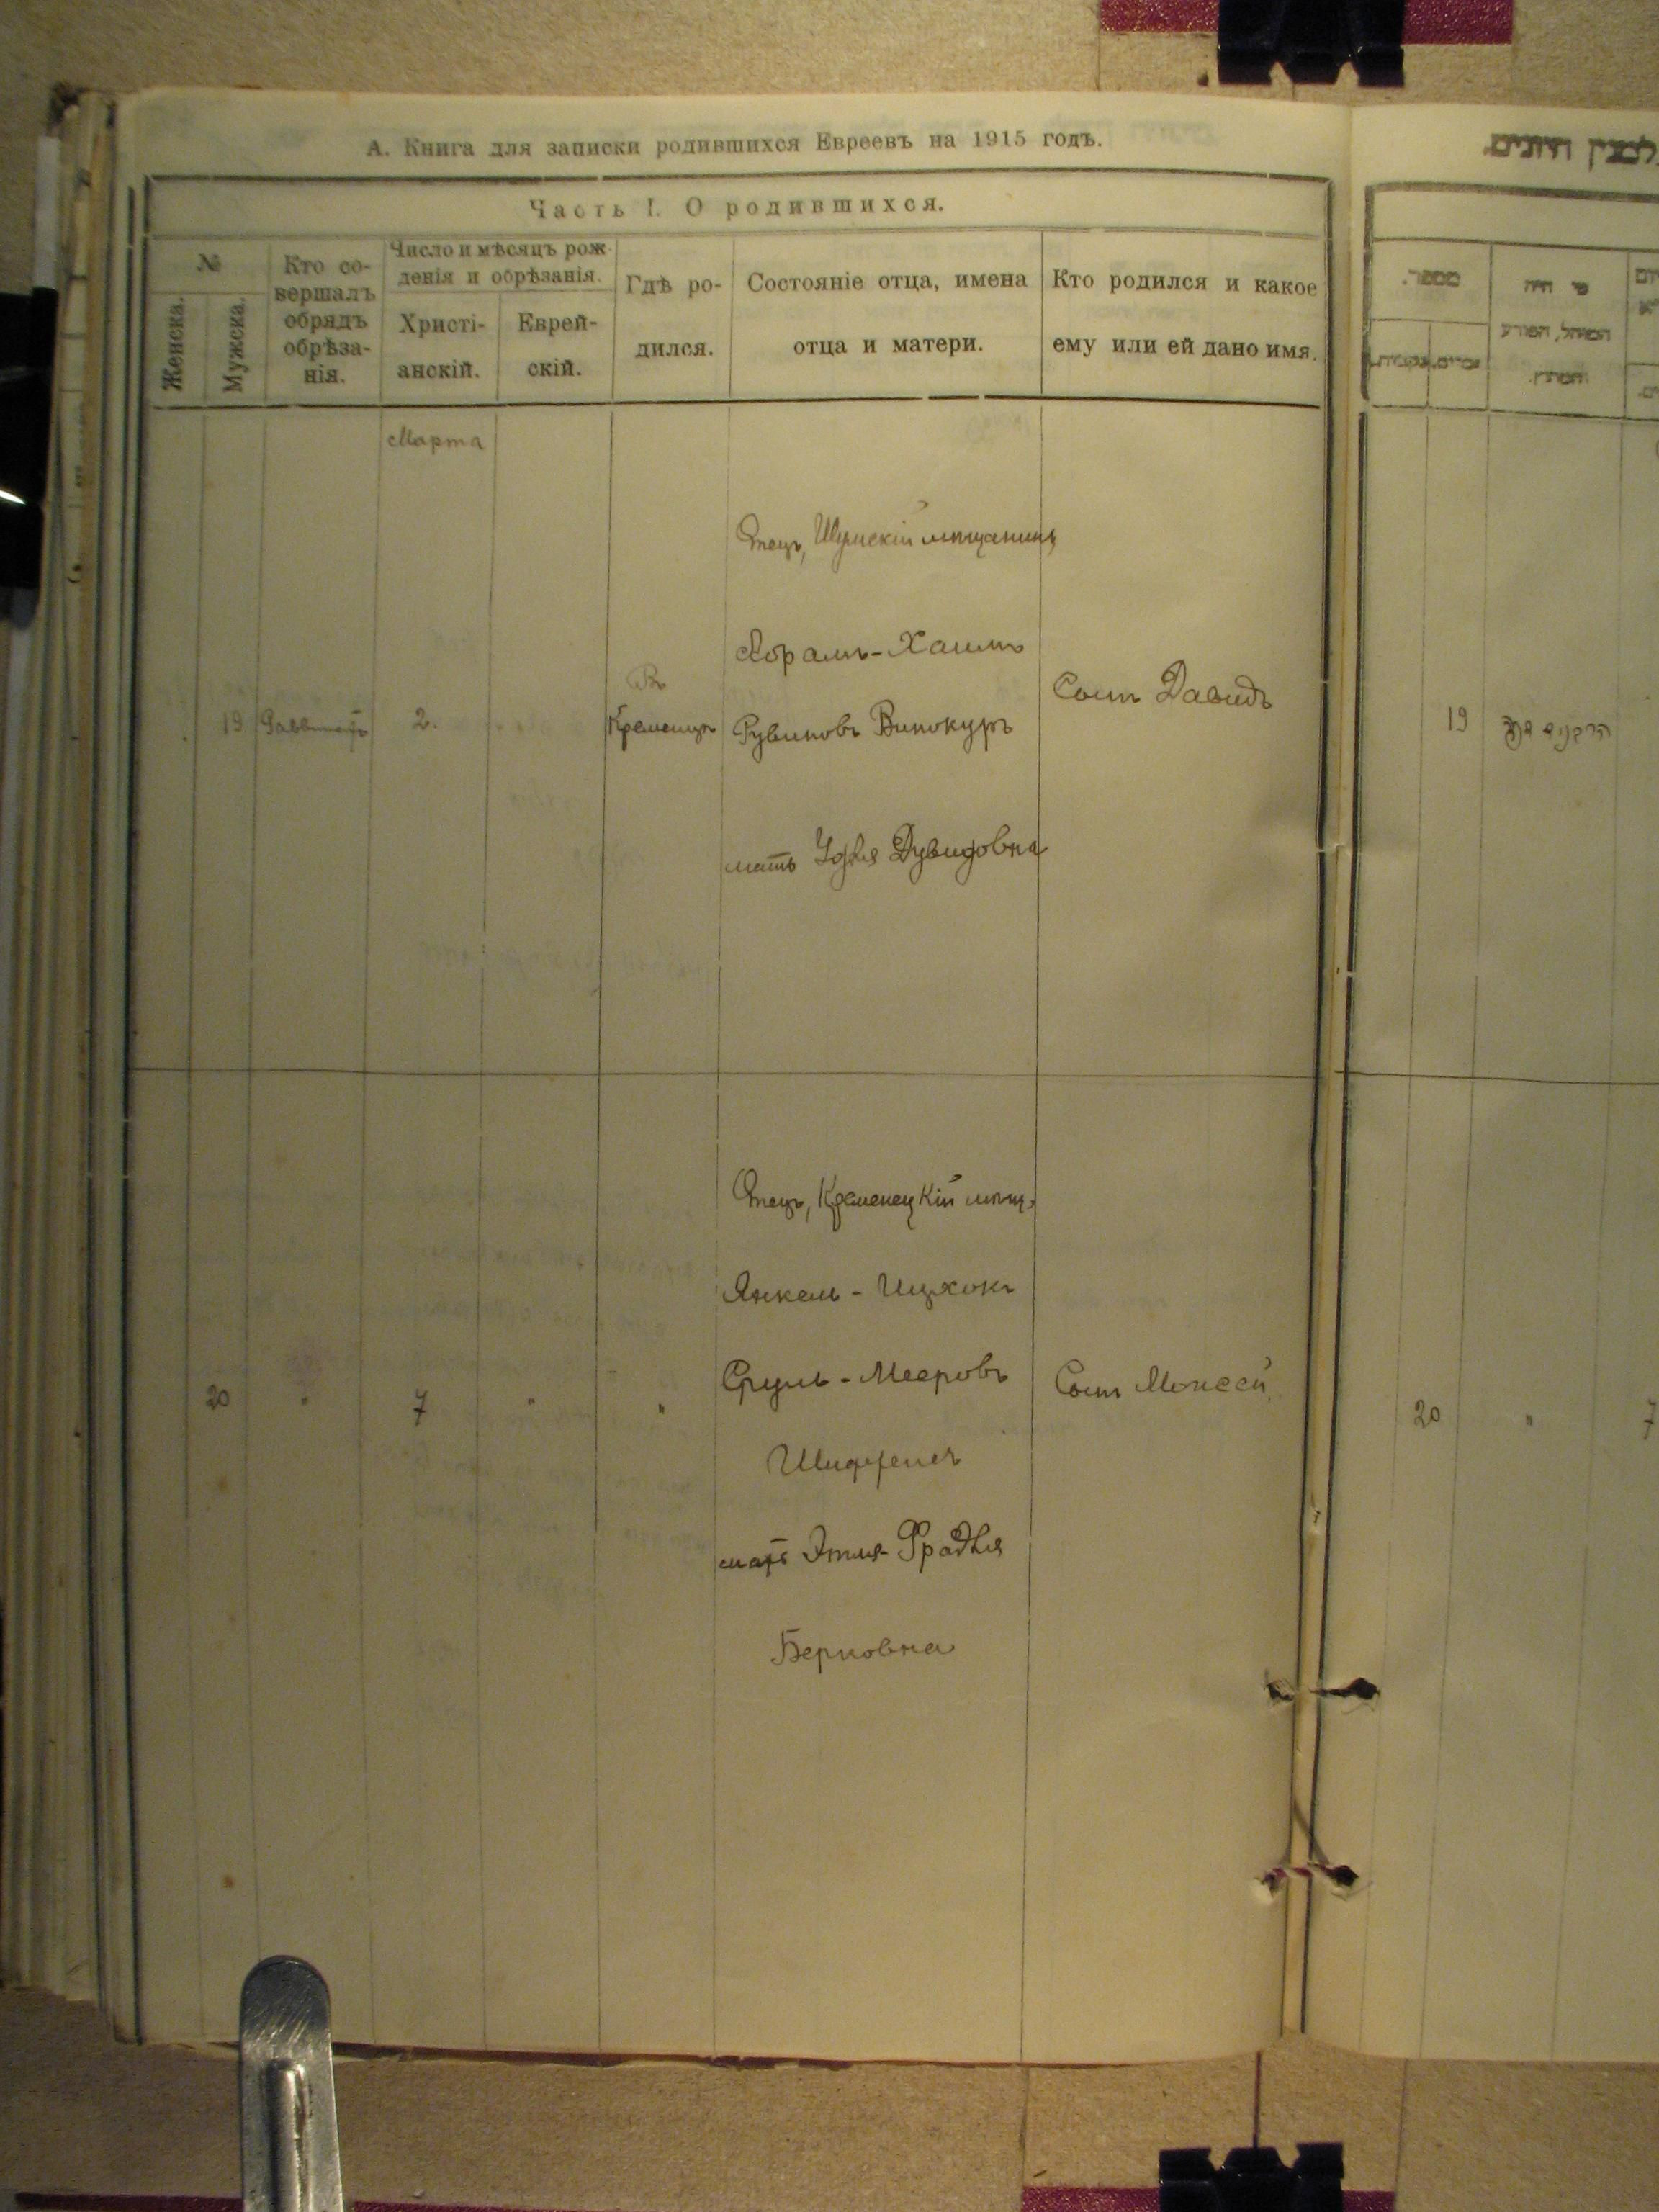 А. Книга для записки родившихся Евреевъ на 1915 годъ.
Часть I. О родившихся.
№
Женска.
Мужска.
Кто со-
вершалъ
обрядъ
обрѣза-
нія.
Число и мѣсяцъ рож-
денія и обрѣзанія.
Христі-
анскій.
Еврей-
скій.
Гдѣ ро-
дился.
Состояніе отца, имена
отца и матери.
Кто родился и какое
ему или ей дано имя.
Марта
19
2.
Въ
Кременцѣ
Отецъ, Шумскій мѣщанинъ
Абрамъ-Хаимъ
Рувиновъ Винокуръ
мать Удля Дувидовна
Сынъ Давидъ
20
"
7
"
"
Отецъ, Кременецкій мѣщ.
Янкель - Ицхокъ
Сруль - Мееровъ
мать Этля-Фрадля
Берковна
Сынъ Моисей
מספר.
מי היה
המוהל,
19
20
"
7